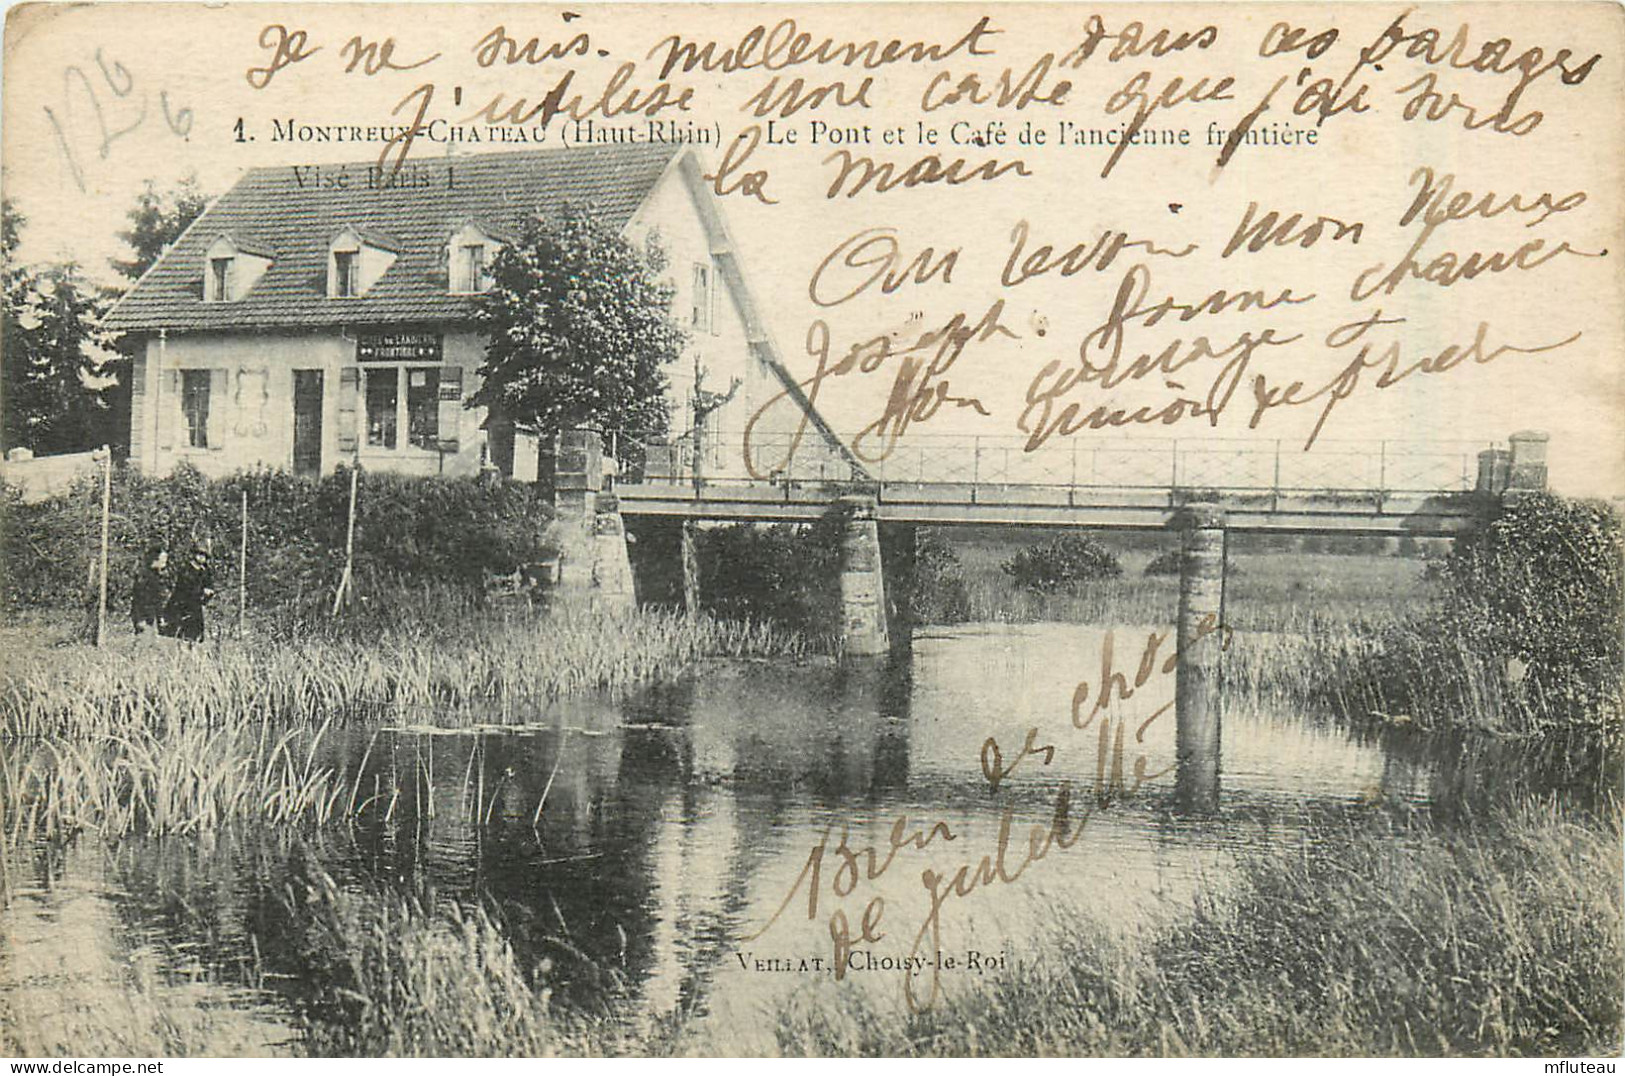 126
6
Je ne suis. nullement dans ces parages
j'utilise une carte que j'ai sous
la main
1. MONTREUX-CHATEAU (Haut-Rhin) - Le Pont et le Café de l'ancienne frontière
Visé Paris 1
Au revoir Mon Vieux
Joseph. Bonne chance
Bon courage &
CAFÉ DE L'ANCIENNE
FRONTIÈRE
Bien des choses
de juillet
VEILLAT, Choisy-le-Roi
mfluteau